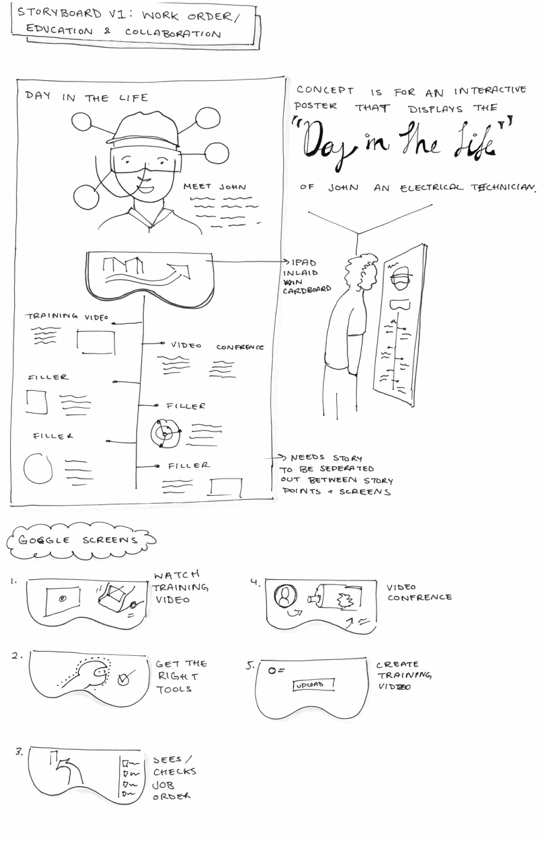 STORYBOARD V1: WORK ORDER/
EDUCATION & COLLABORATION
DAY IN THE LIFE
MEET JOHN
CONCEPT IS FOR AN INTERACTIVE
POSTER THAT DISPLAYS THE
"Day in The Life"
OF JOHN AN ELECTRICAL TECHNICIAN.
IPAD
INLAID
W/IN
CARDBOARD
TRAINING VIDEO
VIDEO CONFERENCE
FILLER
FILLER
FILLER
FILLER
NEEDS STORY
TO BE SEPERATED
OUT BETWEEN STORY
POINTS + SCREENS
GOGGLE SCREENS
1. WATCH
TRAINING
VIDEO
2. GET THE
RIGHT
TOOLS
3. SEES/
CHECKS
JOB
ORDER
4. VIDEO
CONFRENCE
5. UPLOAD
CREATE
TRAINING
VIDEO